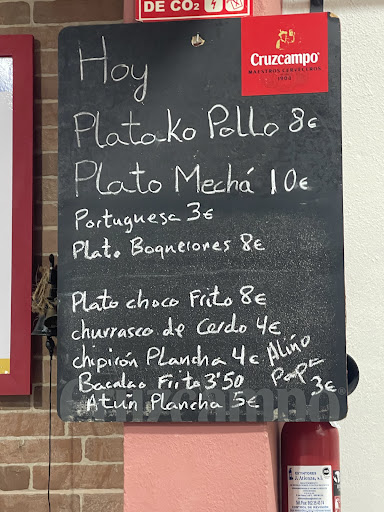 DE CO2
Cruzcampo
MAESTROS CERVECEROS
1904
Hoy
Platako Pollo 8€
Plato Mechá 10€
Portuguesa 3€
Plato Boquerones 8€
Plato choco Frito 8€
churrasco de Cerdo 4€
chipirón Plancha 4€
Aliño
Papa
3€
Bacalao Frito 3'50
Atún Plancha 5€
Cruzcampo